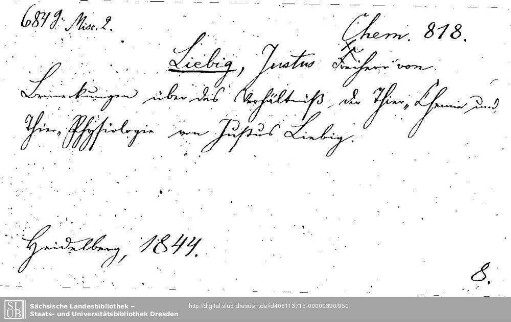 6849. Misc. 2.
Chem. 818.
Liebig, Justus Freiherr von
Bemerkungen über das Verhältniß der Thier-Chemie und
Thier-Physiologie von Justus Liebig.
Heidelberg, 1844.
8.
Sächsische Landesbibliothek –
Staats- und Universitätsbibliothek Dresden